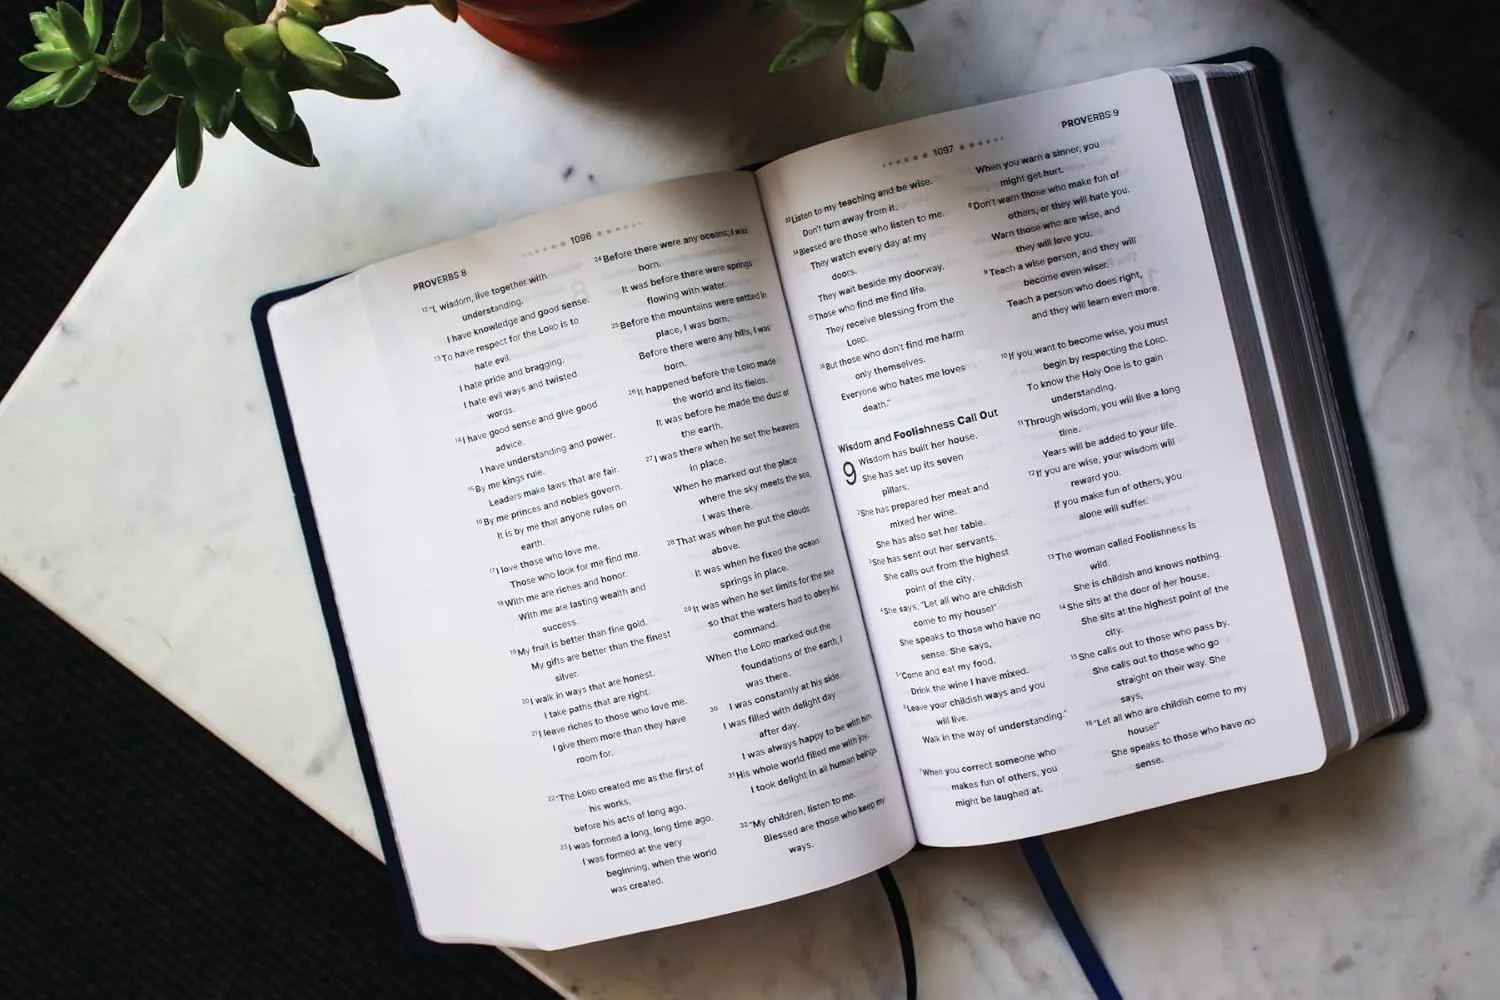 1096
PROVERBS 8
12 "I, wisdom, live together with
understanding.
I have knowledge and good sense.
13 To have respect for the LORD is to
hate evil.
I hate pride and bragging.
I hate evil ways and twisted
words.
14 I have good sense and give good
advice.
I have understanding and power.
15 By me kings rule.
Leaders make laws that are fair.
16 By me princes and nobles govern.
It is by me that anyone rules on
earth.
17 I love those who love me.
Those who look for me find me.
18 With me are riches and honor.
With me are lasting wealth and
success.
19 My fruit is better than fine gold.
My gifts are better than the finest
silver.
20 I walk in ways that are honest.
I take paths that are right.
21 I leave riches to those who love me.
I give them more than they have
room for.
22 "The LORD created me as the first of
his works,
before his acts of long ago.
23 I was formed a long, long time ago.
I was formed at the very
beginning, when the world
was created.
24 Before there were any oceans, I was
born.
It was before there were springs
flowing with water.
25 Before the mountains were settled in
place, I was born.
Before there were any hills, I was
born.
26 It happened before the LORD made
the world and its fields.
It was before he made the dust of
the earth.
27 I was there when he set the heavens
in place.
When he marked out the place
where the sky meets the sea,
I was there.
28 That was when he put the clouds
above.
It was when he fixed the ocean
springs in place.
29 It was when he set limits for the sea
so that the waters had to obey his
command.
When the LORD marked out the
foundations of the earth, I
was there.
30 I was constantly at his side.
I was filled with delight day
after day.
I was always happy to be with him.
31 His whole world filled me with joy.
I took delight in all human beings.
32 "My children, listen to me.
Blessed are those who keep my
ways.
1097
PROVERBS 9
33 Listen to my teaching and be wise.
Don't turn away from it.
34 Blessed are those who listen to me.
They watch every day at my
doors.
They wait beside my doorway.
35 Those who find me find life.
They receive blessing from the
LORD.
36 But those who don't find me harm
only themselves.
Everyone who hates me loves
death."
Wisdom and Foolishness Call Out
9 Wisdom has built her house.
She has set up its seven
pillars.
2 She has prepared her meat and
mixed her wine.
She has also set her table.
3 She has sent out her servants.
She calls out from the highest
point of the city.
4 She says, "Let all who are childish
come to my house!"
She speaks to those who have no
sense. She says,
5 "Come and eat my food.
Drink the wine I have mixed.
6 Leave your childish ways and you
will live.
Walk in the way of understanding."
7 When you correct someone who
makes fun of others, you
might be laughed at.
When you warn a sinner, you
might get hurt.
8 Don't warn those who make fun of
others, or they will hate you.
Warn those who are wise, and
they will love you.
9 Teach a wise person, and they will
become even wiser.
Teach a person who does right,
and they will learn even more.
10 If you want to become wise, you must
begin by respecting the LORD.
To know the Holy One is to gain
understanding.
11 Through wisdom, you will live a long
time.
Years will be added to your life.
12 If you are wise, your wisdom will
reward you.
If you make fun of others, you
alone will suffer.
13 The woman called Foolishness is
wild.
She is childish and knows nothing.
14 She sits at the door of her house.
She sits at the highest point of the
city.
15 She calls out to those who pass by.
She calls out to those who go
straight on their way. She
says,
16 "Let all who are childish come to my
house!"
She speaks to those who have no
sense.